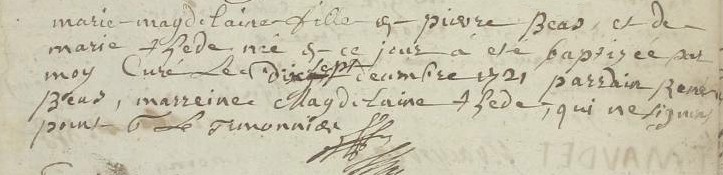 marie magdelaine fille de pierre Beau, et de
marie thede née de ce jour a eté baptizee par
moy Curé Le dix sept decembre 1721 parrain René
Beau, marreine Magdelaine thede, qui ne signent
point